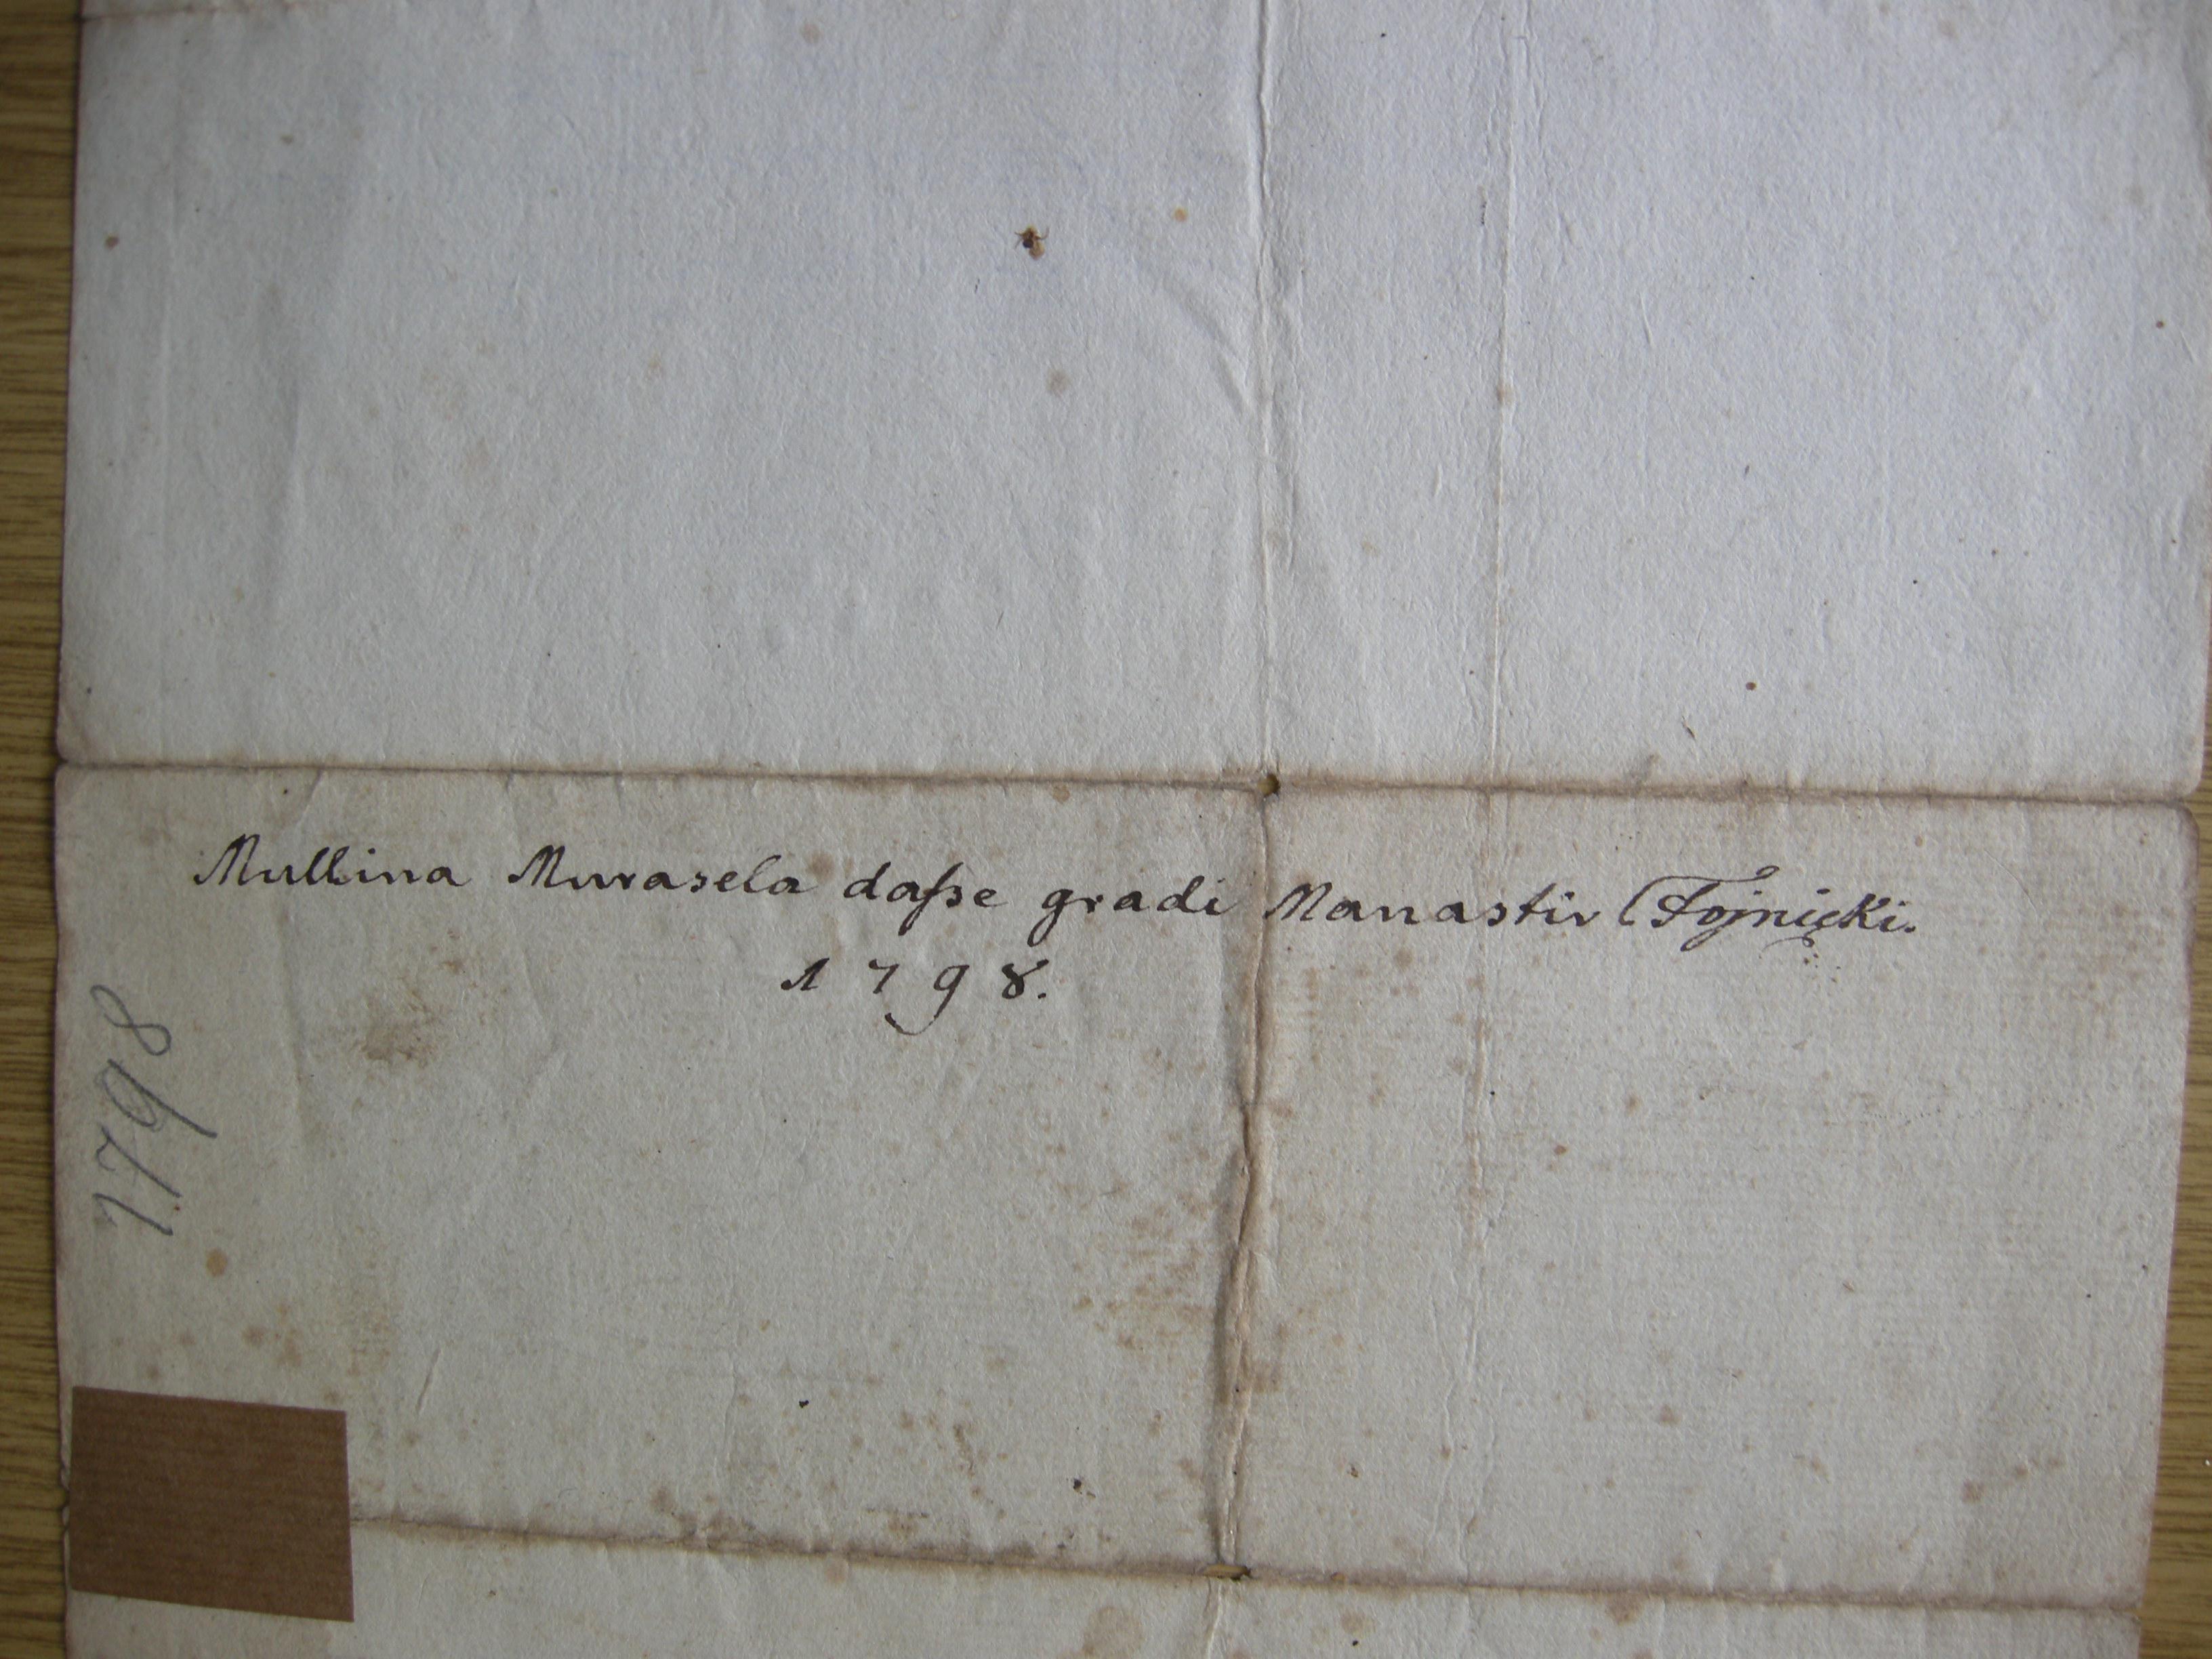 Mullina Murasela daſse gradi Manastir Fojniçki.
1798.
1798